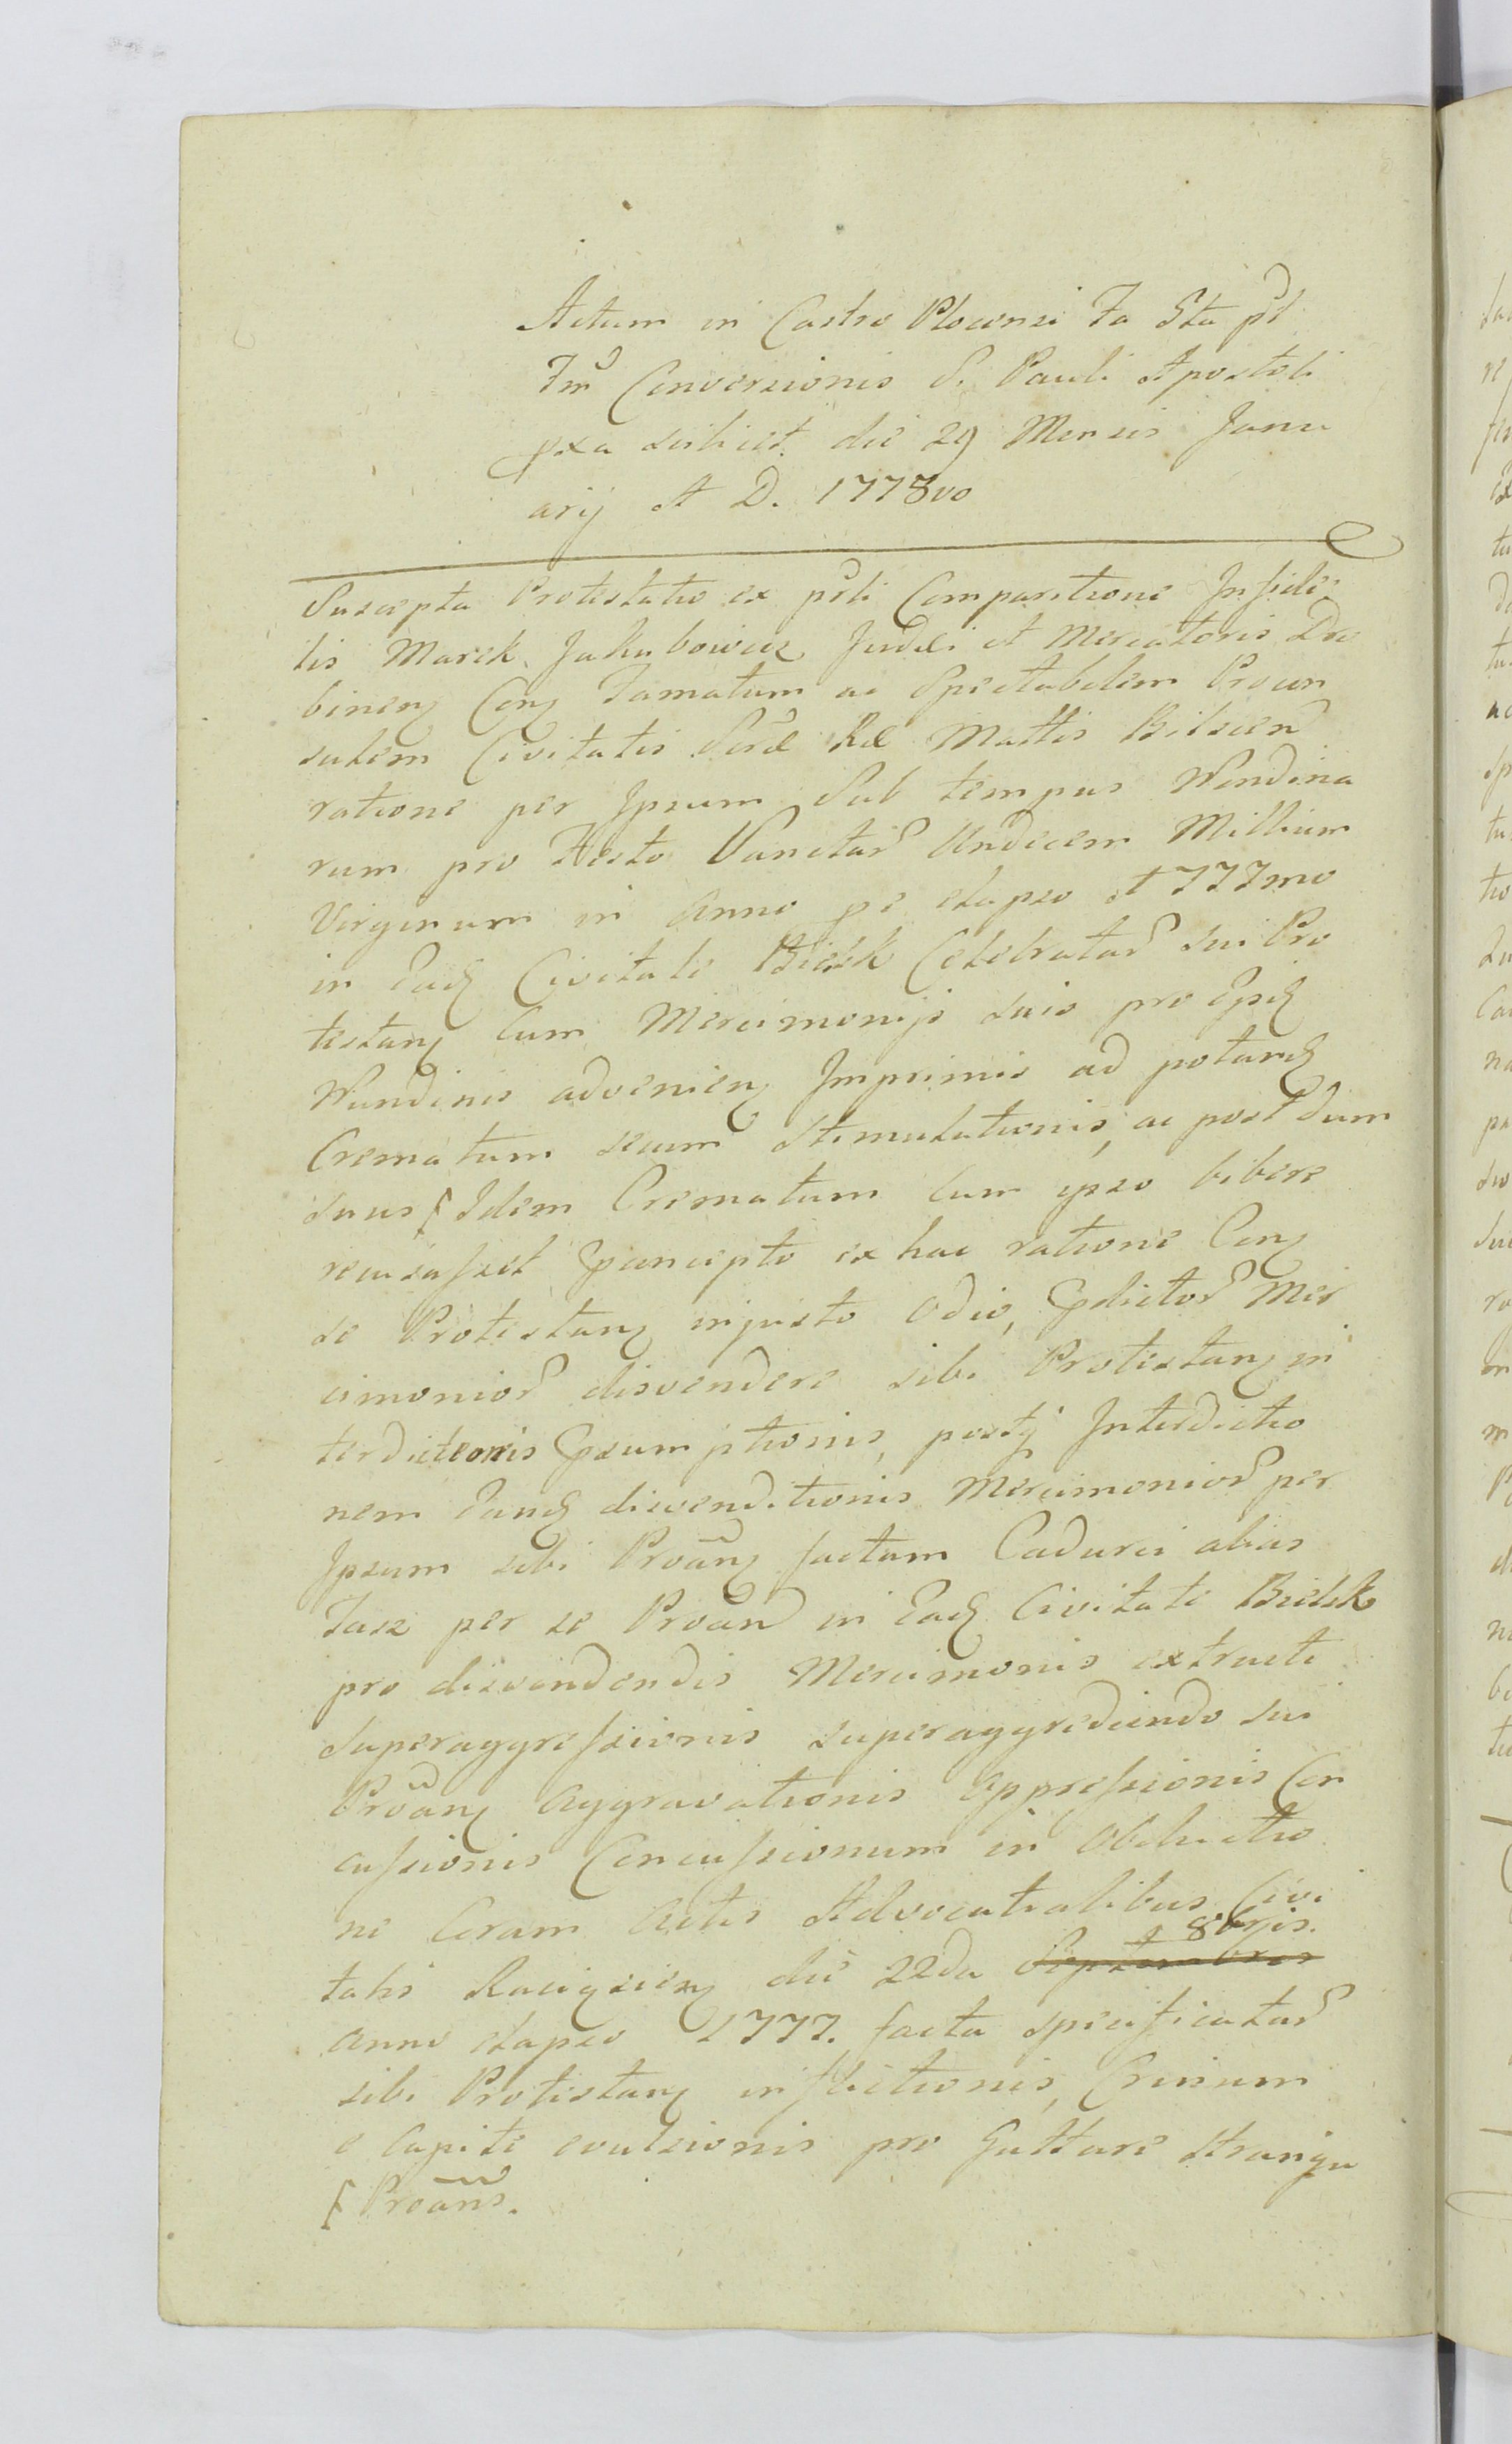 Actum in Castro Plocensi Fa Sta pt
Fm Conversionis S. Pauli Apostoli
pxa scilicet die 29 Mensis Janu
arij A D. 1778vo
Suscepta Protestatio ex psti Comparitione Infide
lis Marek Jakubowicz Judei et Mercatoris Dro
binen Con Famatum ac Spectabilem Procon
sulem Civitatis Sere Rae Mattis Bilscen
ratione per Ipsum Sub tempus Nundina
rum pro Festo Sanctar Undecem Millium
Virginum in Anno pe elapso 1777mo
in Ead Civitate Bielsk Celebratar sui Pro
testan cum Mercimonijs suis pro Ipsis
Nundinis advenien Imprimis ad potand
Crematum secum Stimulationis, ac post dum
suus [ Idem Crematum cum ipso bibere
recusasset Concepto ex hac ratione Con
se Protestan injusto Odio, Edictor Mer
cimonior disvendere sibi Protestan in
terdictionis Consumptionis, postq Interdictio
nem Eand disvenditionis Mercimonior per
Ipsum sibi Proan factam Cadurci alias
Fasz per se Proan in Ead Civitate Bielsk
pro disvendendis Mercimonis extructi
Superaggressionis superaggrediendo sui
Proan Aggravationis Oppressionis Con
cussionis Concussionum in Obductio
ne Coram Actis Advocatialibus Civi
8bris.
tatis Raciązien die 22da Septembris
Anno elapso 1777. facta specificatar
sibi Protestan inflictionis, Crinium
e Capite evulsionis pro Gutture strangu
[ Proans.